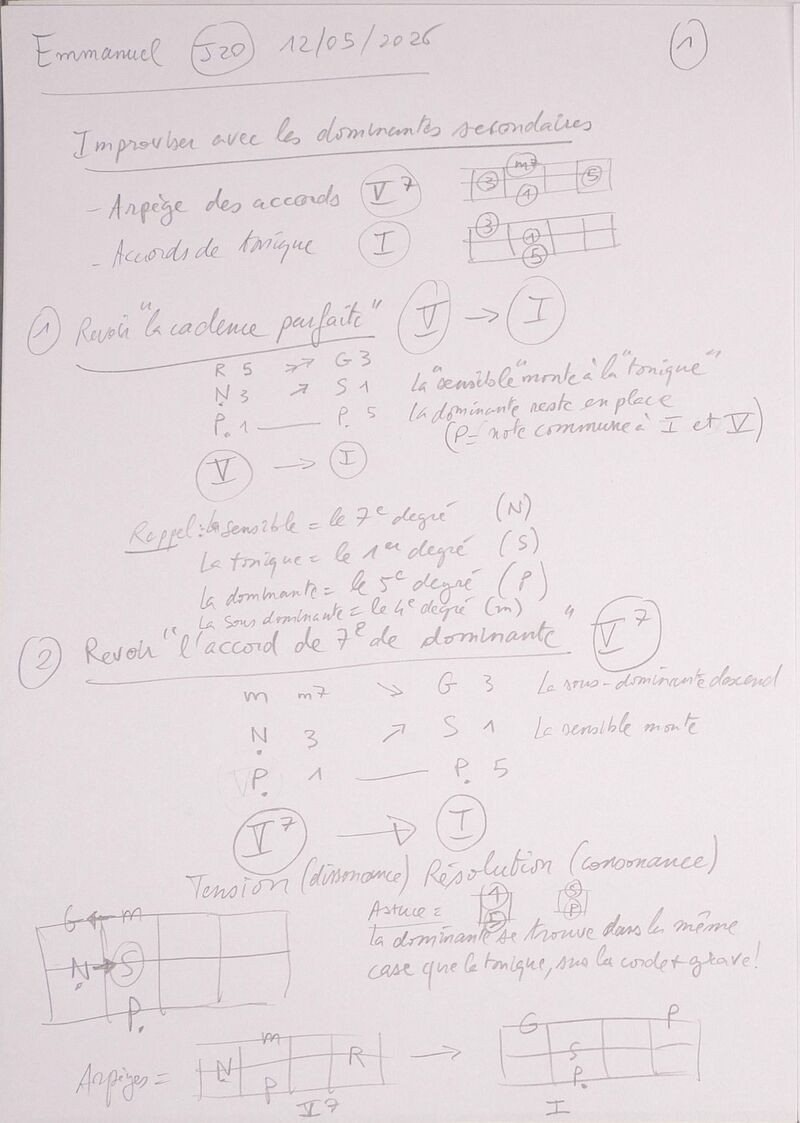 Emmanuel J20 12/05/2026 1
Improviser avec les dominantes secondaires
- Arpège des accords V7 3 m7 1 5
- Accords de tonique I 3 1 5
1 Revoir "la cadence parfaite" V → I
R 5 →→ G 3
Ṇ 3 ↗ S 1 la "sensible" monte à la "tonique"
P. 1 — P. 5 la dominante reste en place
(P = note commune à I et V)
V → I
Rappel : la sensible = le 7e degré (N)
La tonique = le 1er degré (S)
la dominante = le 5e degré (P)
la sous dominante = le 4e degré (m)
2 Revoir "l'accord de 7e de dominante" V7
m m7 ↘ G 3 La sous-dominante descend
Ṇ 3 ↗ S 1 La sensible monte
P. 1 — P. 5
V7 → I
Tension (dissonance) Résolution (consonance)
Astuce = 1 5 S P
la dominante se trouve dans la même
case que la tonique, sur la corde + grave!
G ← m
Ṇ → S
P.
Arpèges = Ṇ m P R → G S P. P
V7 I